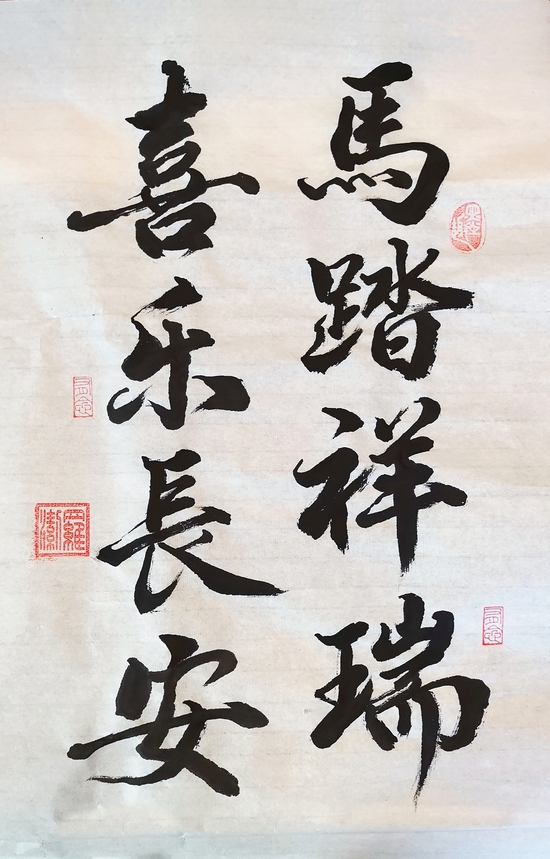 馬踏祥瑞
喜乐長安